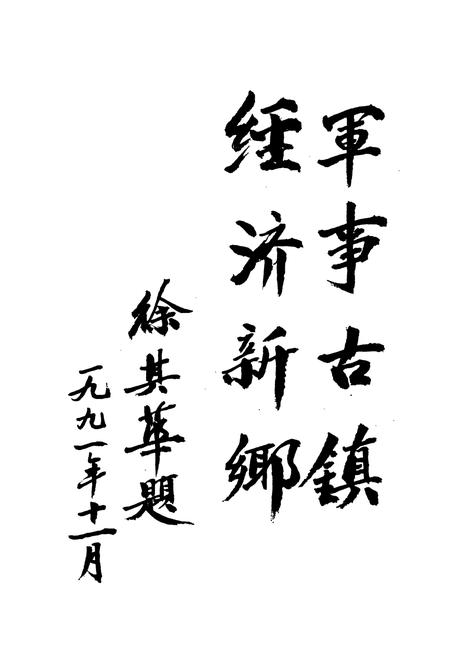 軍事古鎮
経济新鄉
徐其華題
一九九一年十一月